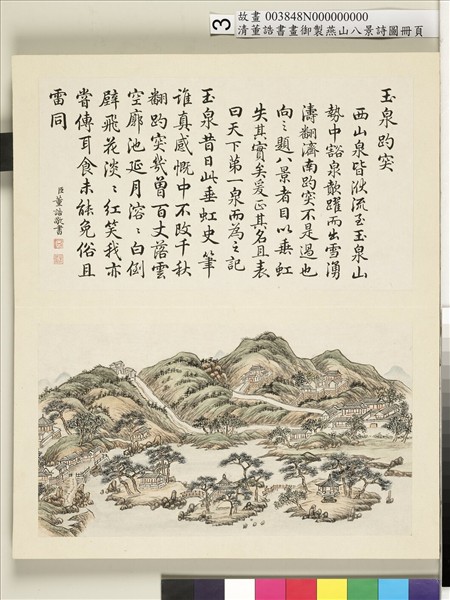 故畫 003848N000000000
清董誥書畫御製燕山八景詩圖冊頁
3
玉泉趵突
西山泉皆洑流至玉泉山
勢中豁泉歕躍而出雪湧
濤翻濟南趵突不是過也
向之題八景者目以垂虹
失其實矣爰正其名且表
曰天下第一泉而為之記
玉泉昔日此垂虹史筆
誰真感慨中不改千秋
翻趵突幾曾百丈落雲
空廊池延月溶溶白倒
壁飛花淡淡紅笑我亦
嘗傳耳食未能免俗且
雷同
臣董誥敬書